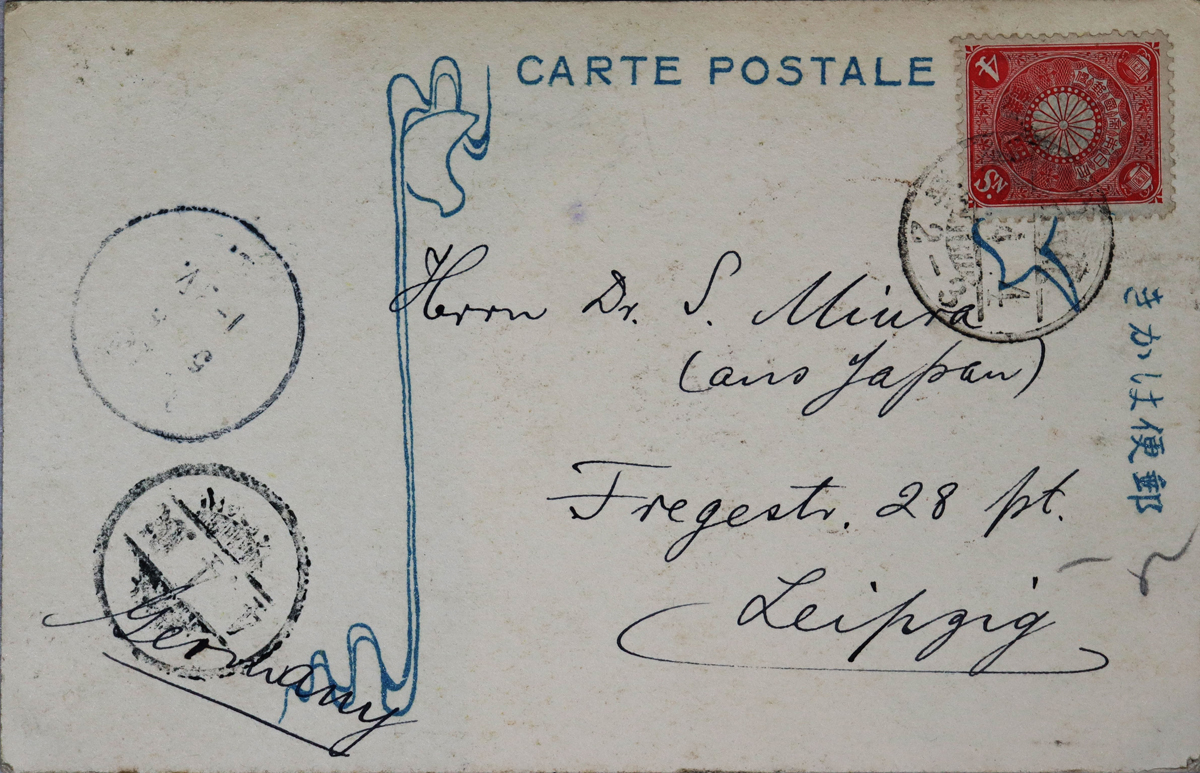 CARTE POSTALE
4
Sn.
郵便はかき
Herrn Dr. S. Miura
(aus Japan)
Fregestr. 28 pt.
Leipzig
Germany